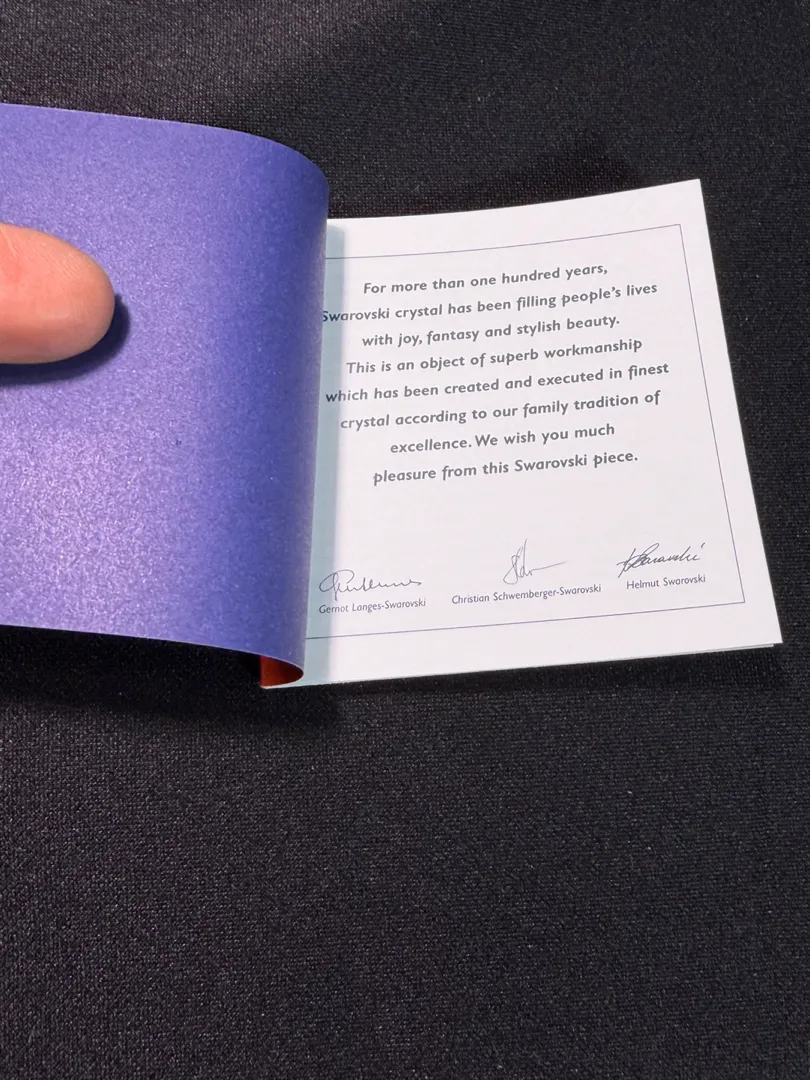 For more than one hundred years,
Swarovski crystal has been filling people's lives
with joy, fantasy and stylish beauty.
This is an object of superb workmanship
which has been created and executed in finest
crystal according to our family tradition of
excellence. We wish you much
pleasure from this Swarovski piece.
Gernot Langes-Swarovski
Christian Schwemberger-Swarovski
Helmut Swarovski